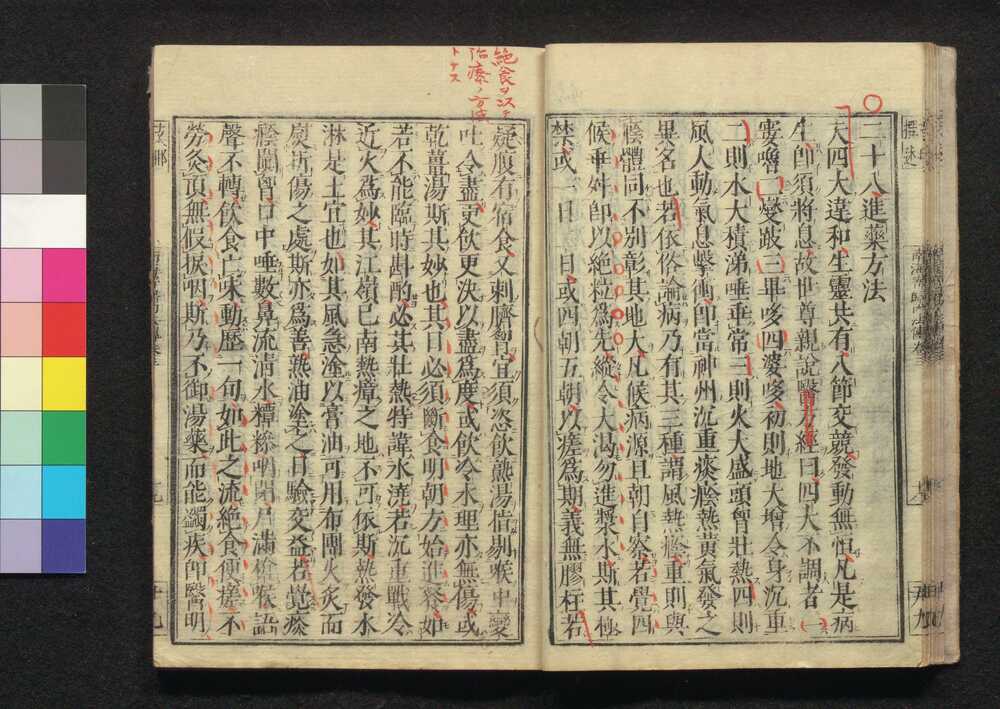 二十八進藥方法
夫四大違和生靈共有八節交競發動無恒凡是病
生卽須將息故世尊親說醫方經曰四大不調者一
窶嚕二爕跛三畢哆四婆哆初則地大增令身沉重
二則水大積涕唾乖常三則火大盛頭胷壯熱四則
風大動氣息擊衝卽當神州沉重痰癊熱黃氣發之
異名也若依俗論病乃有其三種謂風熱癊重則與
癊體同不別彰其地大凡候病源旦朝自察若覺四
候乖舛卽以絶粒爲先縱令大渴勿進漿水斯其極
禁或一日 日或四朝五朝以瘥爲期義無膠柱若
絶食ヲ
治療ノ方
トナス
疑腹有宿食又刺臍胷宜須恣飲熟湯指剔喉中變
吐令盡更飲更決以盡爲度或飲冷水理亦無傷或
乾薑湯斯其妙也其日必須斷食明朝方始進餐如
若不能臨時斟酌必其壯熱特諱水澆若沉重戰冷
近火爲妙其江嶺已南熱瘴之地不可依斯熱發水
淋是土宜也如其風急塗以膏油可用布團火炙而
熨折傷之處斯亦爲善熟油塗之目驗交益若覺痰
癊闐胷口中唾數鼻流淸水 咽閉戶滿槍喉語
聲不轉飲食亡味動歷一旬如此之流絶食便瘥不
勞灸頂無假捩咽斯乃不御湯藥而能蠲疾卽醫明